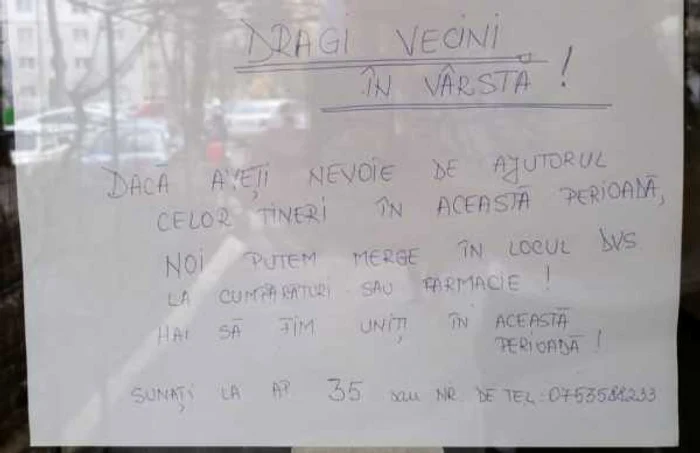 DRAGI VECINI
ÎN VÂRSTĂ !
DACĂ AVEȚI NEVOIE DE AJUTORUL
CELOR TINERI ÎN ACEASTĂ PERIOADĂ,
NOI PUTEM MERGE ÎN LOCUL DVS
LA CUMPĂRĂTURI SAU FARMACIE !
HAI SĂ FIM UNIȚI ÎN ACEASTĂ
PERIOADĂ !
SUNAȚI LA AP 35 sau NR. DE TEL: 0753588233